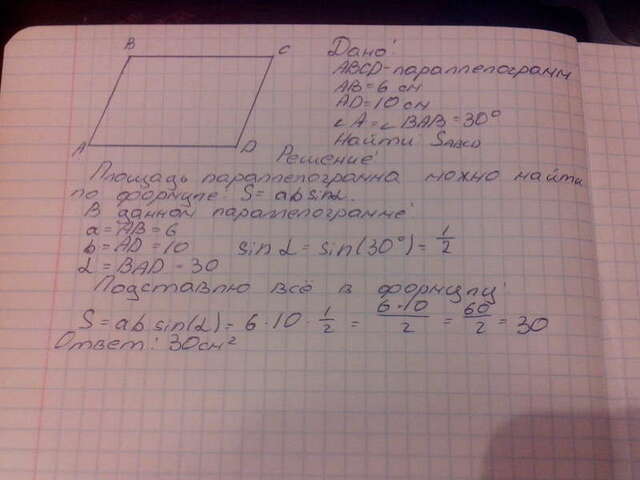 B C
A D
Дано:
ABCD-параллелограмм
AB=6 см
AD=10 см
∠A=∠BAB=30°
Найти SABCD
Решение
Площадь параллелограмма можно найти
по формуле: S=ab sinα.
В данном параллелограмме:
a=AB=6
b=AD=10 sin α = sin(30°)= 1/2
α=BAD-30
Подставлю всё в формулу:
S=ab sin(α)= 6·10·1/2 = 6·10/2 = 60/2 = 30
Ответ: 30см²